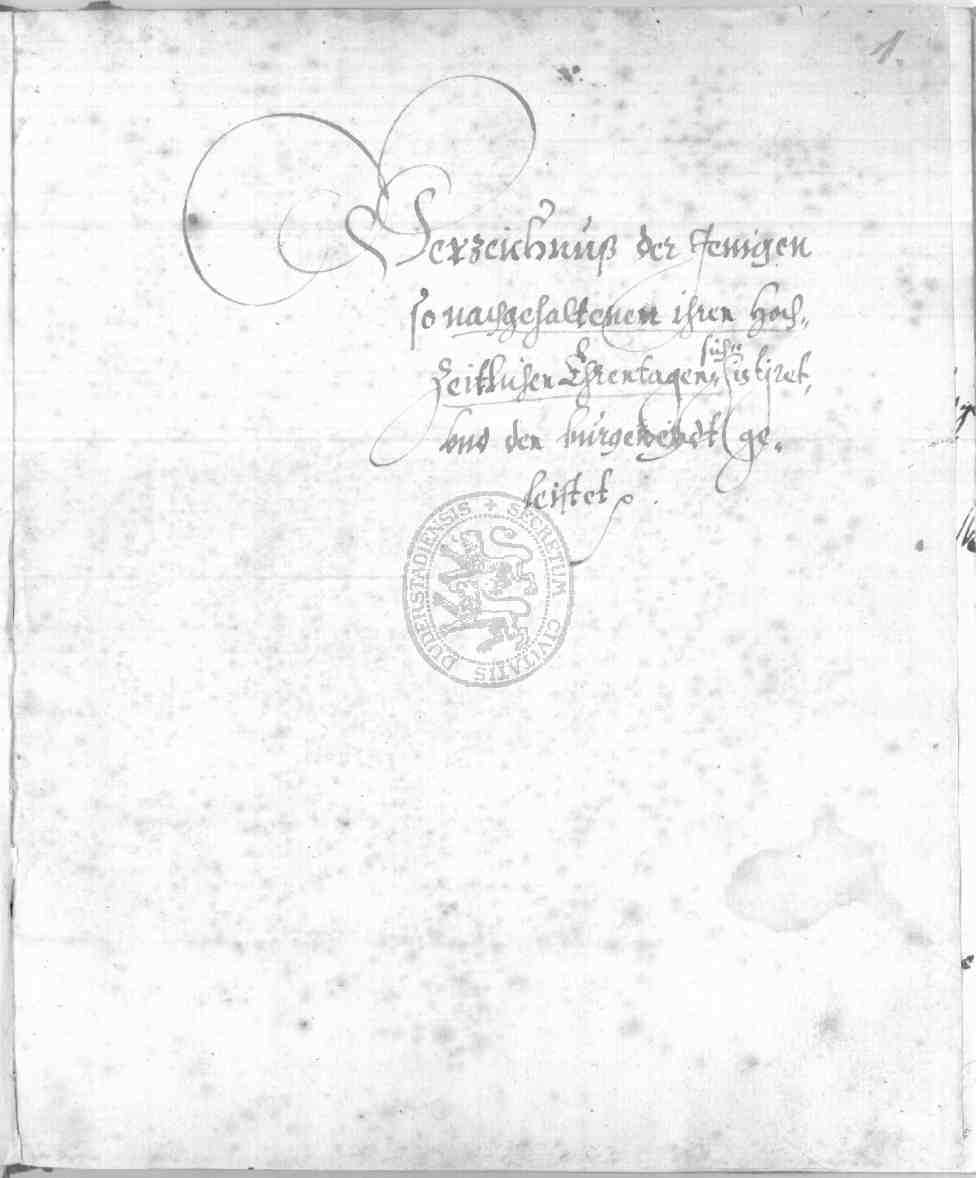 1.
Verzeichnuß der Jenigen
so nachgehaltenen ihren Hoch,
Zeitlichen Ehrentagen, sich sistiret,
vnd den bürgereydt ge,
leistet
SECRETUM CIVITATIS DUDERSTADIENSIS